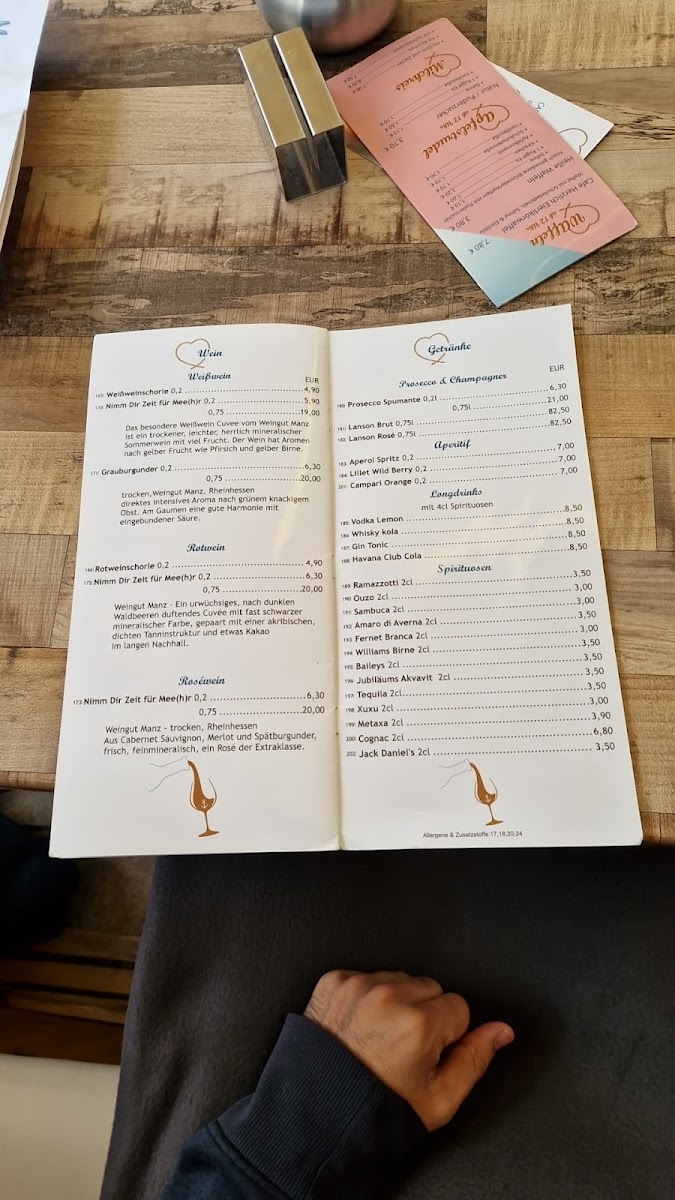 Milchreis
Apfelstrudel
ab 12 Uhr
Natur / Puderzucker
3,70 €
Waffeln
ab 12 Uhr
Heiße Waffeln
Cafe Herzlich Eierlikörwaffel
3,80 €
7,80 €
Wein
Weißwein
EUR
169 Weißweinschorle 0,2 4,90
170 Nimm Dir Zeit für Mee(h)r 0,2 5,90
0,75 19,00
Das besondere Weißwein Cuvee vom Weingut Manz
ist ein trockener, leichter, herrlich mineralischer
Sommerwein mit viel Frucht. Der Wein hat Aromen
nach gelber Frucht wie Pfirsich und gelber Birne.
171 Grauburgunder 0,2 6,30
0,75 20,00
trocken,Weingut Manz, Rheinhessen
direktes intensives Aroma nach grünem knackigem
Obst. Am Gaumen eine gute Harmonie mit
eingebundener Säure.
Rotwein
Rotweinschorle 0,2 4,90
172 Nimm Dir Zeit für Mee(h)r 0,2 6,30
0,75 20,00
Weingut Manz - Ein urwüchsiges, nach dunklen
Waldbeeren duftendes Cuvée mit fast schwarzer
mineralischer Farbe, gepaart mit einer akribischen,
dichten Tanninstruktur und etwas Kakao
im langen Nachhall.
Roséwein
173 Nimm Dir Zeit für Mee(h)r 0,2 6,30
0,75 20,00
Weingut Manz - trocken, Rheinhessen
Aus Cabernet Sauvignon, Merlot und Spätburgunder,
frisch, feinmineralisch, ein Rosé der Extraklasse.
Getränke
EUR
Prosecco & Champagner
180 Prosecco Spumante 0,2l 6,30
0,75l 21,00
181 Lanson Brut 0,75l 82,50
182 Lanson Rosé 0,75l 82,50
Aperitif
183 Aperol Spritz 0,2 7,00
184 Lillet Wild Berry 0,2 7,00
201 Campari Orange 0,2 7,00
Longdrinks
mit 4cl Spirituosen
185 Vodka Lemon 8,50
186 Whisky kola 8,50
187 Gin Tonic 8,50
188 Havana Club Cola 8,50
Spirituosen
189 Ramazzotti 2cl 3,50
190 Ouzo 2cl 3,00
191 Sambuca 2cl 3,00
192 Amaro di Averna 2cl 3,50
193 Fernet Branca 2cl 3,00
194 Williams Birne 2cl 3,50
195 Baileys 2cl 3,50
196 Jubiläums Akvavit 2cl 3,50
197 Tequila 2cl 3,50
198 Xuxu 2cl 3,00
199 Metaxa 2cl 3,90
200 Cognac 2cl 6,80
202 Jack Daniel's 2cl 3,50
Allergene & Zusatzstoffe:17,18,20,24